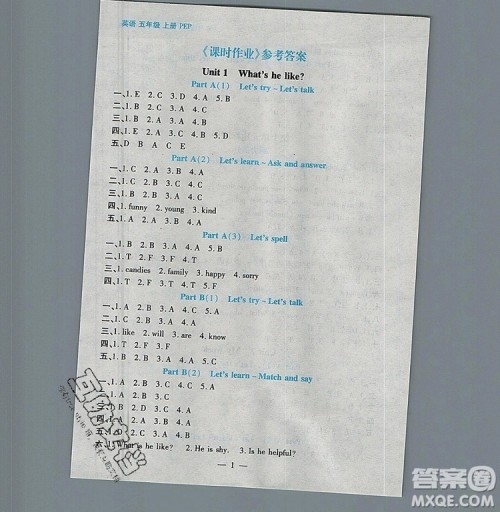 英语 五年级 上册 PEP
《课时作业》参考答案
Unit 1 What's he like?
Part A(1) Let's try – Let's talk
一、1. E 2. C 3. D 4. A 5. B
二、1. B 2. A 3. B 4. A
三、1. C 2. B 3. A 4. C
四、1. E 2. A 3. D 4. C 5. B
五、D B A C E
Part A(2) Let's learn – Ask and answer
一、1. C 2. B 3. A 4. C
二、1. C 2. B 3. B 4. A
三、1. B 2. A 3. B 4. A
四、1. funny 2. young 3. kind
Part A(3) Let's spell
一、1. B 2. A 3. B 4. B
二、1. T 2. F 3. F 4. T
三、1. candies 2. family 3. happy 4. sorry
四、1. T 2. F 3. T 4. F
Part B(1) Let's try – Let's talk
一、1. A 2. B 3. C 4. A
二、1. C 2. B 3. A 4. C
三、1. like 2. will 3. are 4. know
四、1. T 2. F 3. F
Part B(2) Let's learn – Match and say
一、1. A 2. B 3. B 4. A
1. A 2. B 3. C 4. C
1. B 2. D 3. C 4. A
2. B 3. A 4. A
What is he like? 2. He is shy. 3. Is he helpful?
— 1 —
答案圈
MXQE.COM